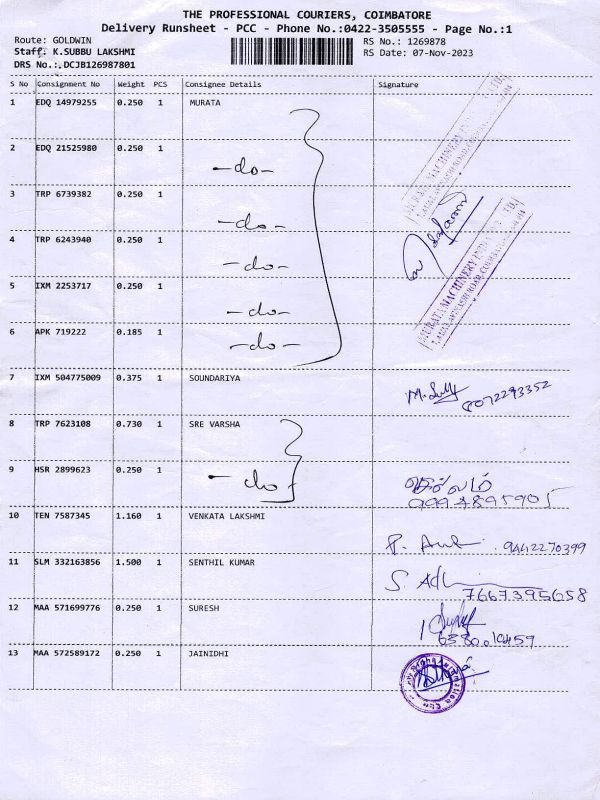 THE PROFESSIONAL COURIERS, COIMBATORE
Delivery Runsheet - PCC - Phone No.:0422-3505555 - Page No.:1
Route: GOLDWIN RS No.: 1269878
Staff. K.SUBBU LAKSHMI RS Date: 07-Nov-2023
DRS No.:.DCJB126987801
S No Consignment No Weight PCS Consignee Details Signature
1 EDQ 14979255 0.250 1 MURATA
2 EDQ 21525980 0.250 1
-do-
3 TRP 6739382 0.250 1
-do-
4 TRP 6243940 0.250 1
-do-
5 IXM 2253717 0.250 1
-do-
6 APK 719222 0.185 1
-do-
MURATA MACHINERY
7 IXM 504775009 0.375 1 SOUNDARIYA
8072293352
8 TRP 7623108 0.730 1 SRE VARSHA
9 HSR 2899623 0.250 1
-do-
செல்வம்
9994895905
10 TEN 7587345 1.160 1 VENKATA LAKSHMI
9442270399
11 SLM 332163856 1.500 1 SENTHIL KUMAR
7667395658
12 MAA 571699776 0.250 1 SURESH
13 MAA 572589172 0.250 1 JAINIDHI